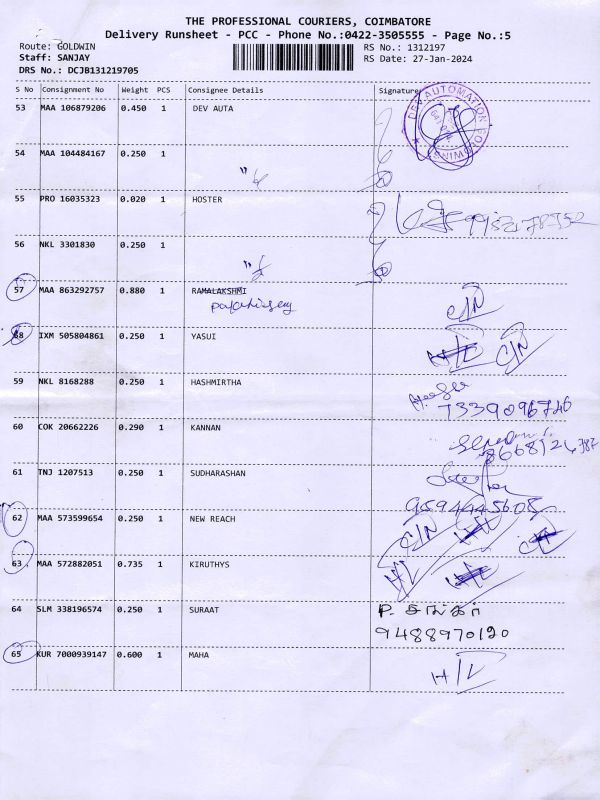 THE PROFESSIONAL COURIERS, COIMBATORE
Delivery Runsheet - PCC - Phone No.:0422-3505555 - Page No.:5
Route: GOLDWIN RS No.: 1312197
Staff: SANJAY RS Date: 27-Jan-2024
DRS No.: DCJB131219705
S No Consignment No Weight PCS Consignee Details Signature
53 MAA 106879206 0.450 1 DEV AUTA
DEV AUTOMATION
54 MAA 104484167 0.250 1
55 PRO 16035323 0.020 1 HOSTER
56 NKL 3301830 0.250 1
57 MAA 863292757 0.880 1 RAMALAKSHMI
C/N
58 IXM 505804861 0.250 1 YASUI H/L C/N
59 NKL 8168288 0.250 1 HASHMIRTHA
7339096746
60 COK 20662226 0.290 1 KANNAN
8668126387
61 TNJ 1207513 0.250 1 SUDHARASHAN
9594445605
62 MAA 573599654 0.250 1 NEW REACH C/N
63 MAA 572882051 0.735 1 KIRUTHYS H/L H/L
64 SLM 338196574 0.250 1 SURAAT P. சங்கர்
9488970120
65 KUR 7000939147 0.600 1 MAHA H/L